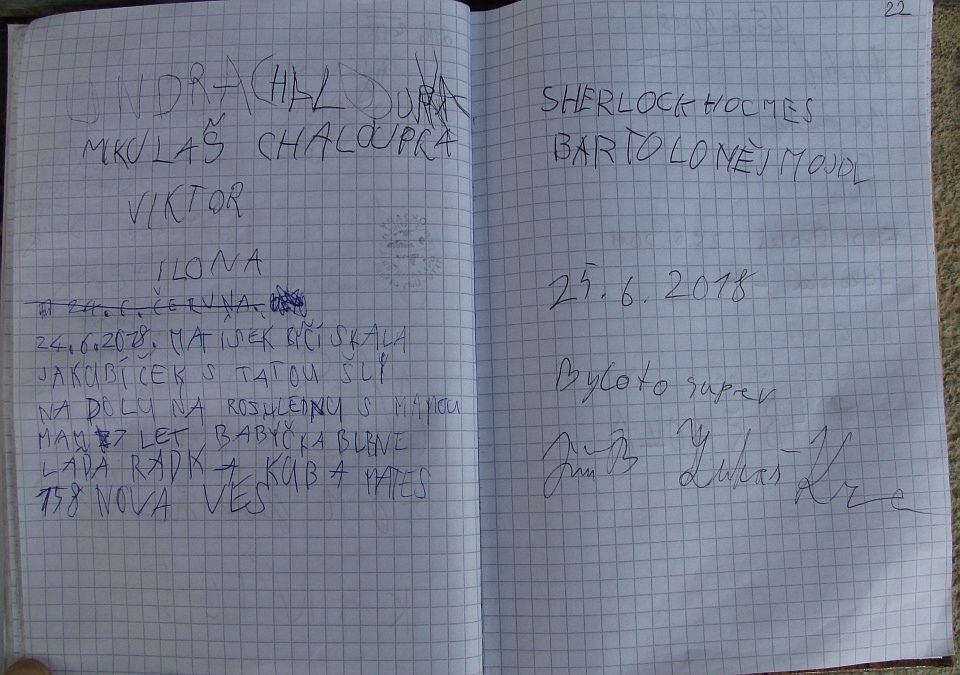 ONDRA CHALOUPKA
MKULAŠ CHALOUPKA
VIKTOR
ILONA
24.6. ČERVNA.
24.6.2018. MATÍSEK BÝČÍ SKALA
JAKUBÍČEK S TATOU ŠLI
NA DOLU NA ROSHLEDNU S MAMOU
MAM 7 LET BABYČKA BLBNE
LAĎA RADK A KUBA MATES
158 NOVA VES
22
SHERLOCK HOLMES
BARTOLONĚJ MOJDL
25.6.2018
Bylo to super
Lukáš